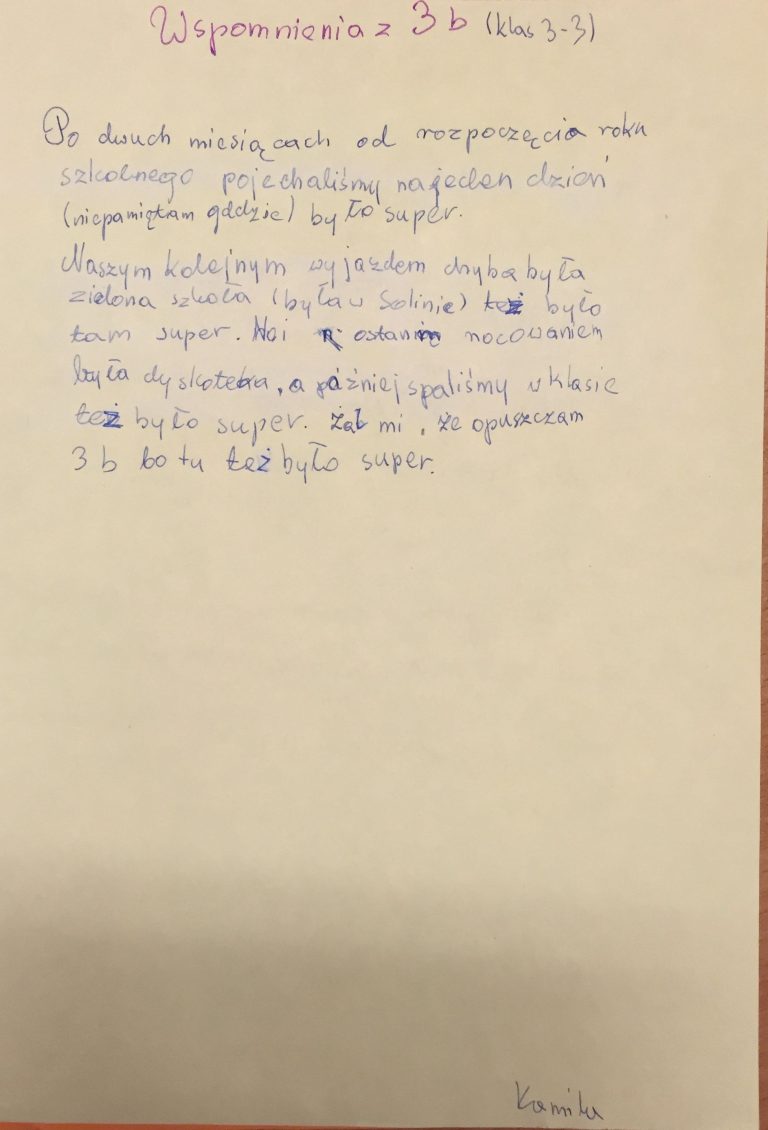 Wspomnienia z 3 b (klas 3-3)
Po dwuch miesiącach od rozpoczęcia roku
szkolnego pojechaliśmy na jeden dzień
(niepamiętam gddzie) było super.
Naszym kolejnym wyjazdem chyba była
zielona szkoła (była w Solinie) też było
tam super. Noi ostanim nocowaniem
była dyskoteka, a później spaliśmy w klasie
też było super. Żal mi, że opuszczam
3 b bo tu też było super.
Kamila